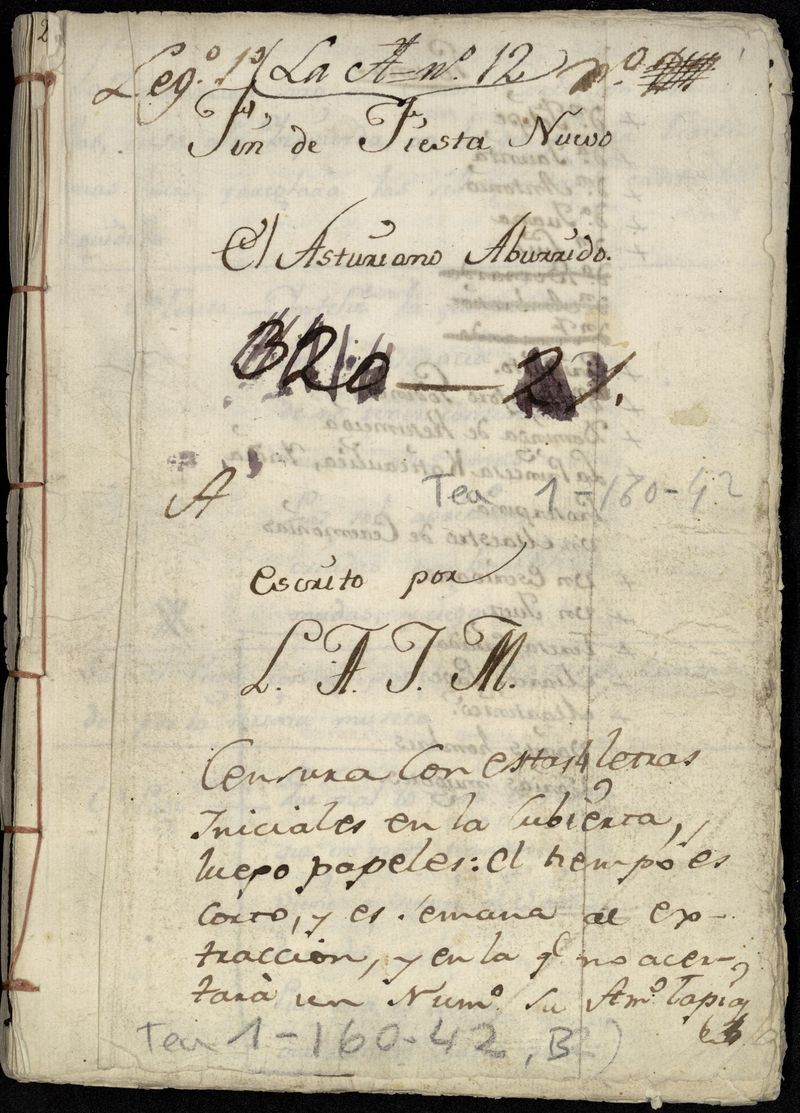 2
Leg.º 1º La A nº. 12 nº.
Fin de Fiesta Nuevo
El Asturiano Aburrido.
320 — 21.
A
Tea 1-160-42
escrito por
L. A. J. M.
Censura con estas 4 letras
Iniciales en la Cubierta,
luego papeles: el tiempo es
corto, y es semana de ex-
tracción, y en la q.e no acer-
tará un Num.º su Am.º Tapia
Tea 1-160-42, B)